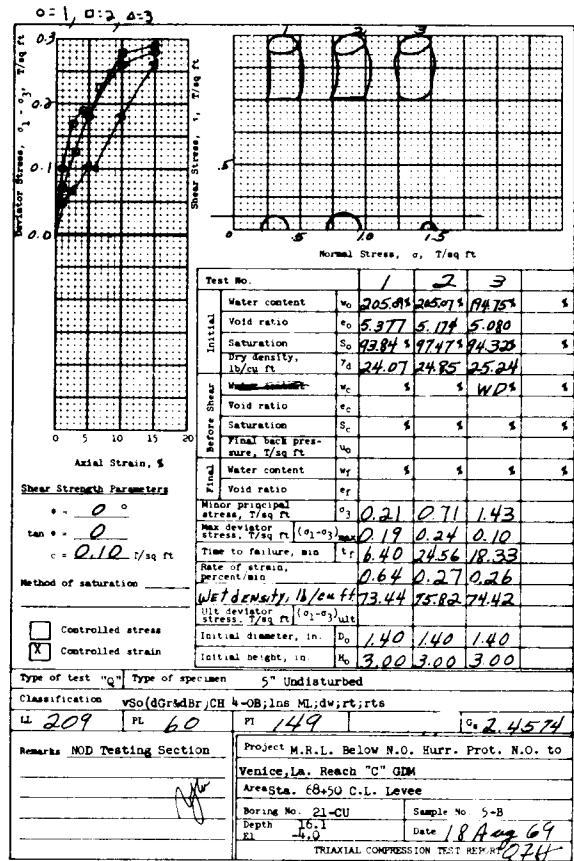 o=1, □=2, △=3
Deviator Stress, σ1 - σ3, T/sq ft
0.3
0.2
0.1
0.0
0 5 10 15 20
Axial Strain, %
Shear Stress, τ, T/sq ft
1 2 3
.5
0 .5 1.0 1.5
Normal Stress, σ, T/sq ft
Shear Strength Parameters
φ = 0 °
tan φ = 0
c = 0.10 T/sq ft
Method of saturation
Controlled stress
X Controlled strain
Test No. 1 2 3
Initial
Water content w0 205.09% 205.07% 194.75% %
Void ratio e0 5.377 5.174 5.080
Saturation S0 93.84% 97.47% 94.32% %
Dry density, lb/cu ft γd 24.07 24.85 25.24
Before Shear
Water content wc % % WD% %
Void ratio ec
Saturation Sc % % % %
Final back pressure, T/sq ft u0
Final
Water content wf % % % %
Void ratio ef
Minor principal stress, T/sq ft σ3 0.21 0.71 1.43
Max deviator stress, T/sq ft (σ1-σ3)max 0.19 0.24 0.10
Time to failure, min tf 6.40 24.56 18.33
Rate of strain, percent/min 0.64 0.27 0.26
Wet density, lb/cu ft 73.44 75.82 74.42
Ult deviator stress, T/sq ft (σ1-σ3)ult
Initial diameter, in. D0 1.40 1.40 1.40
Initial height, in. H0 3.00 3.00 3.00
Type of test "Q" Type of specimen 5" Undisturbed
Classification vSo(dGr&dBr)CH 4-OB;lns ML;dw;rt;rts
LL 209 PL 60 PI 149 Gs 2.4574
Remarks NOD Testing Section
Project M.R.L. Below N.O. Hurr. Prot. N.O. to
Venice,La. Reach "C" GDM
Area Sta. 68+50 C.L. Levee
Boring No. 21-CU Sample No. 5-B
Depth 16.1
El -4.0 Date 18 Aug 69
TRIAXIAL COMPRESSION TEST REPORT 07H